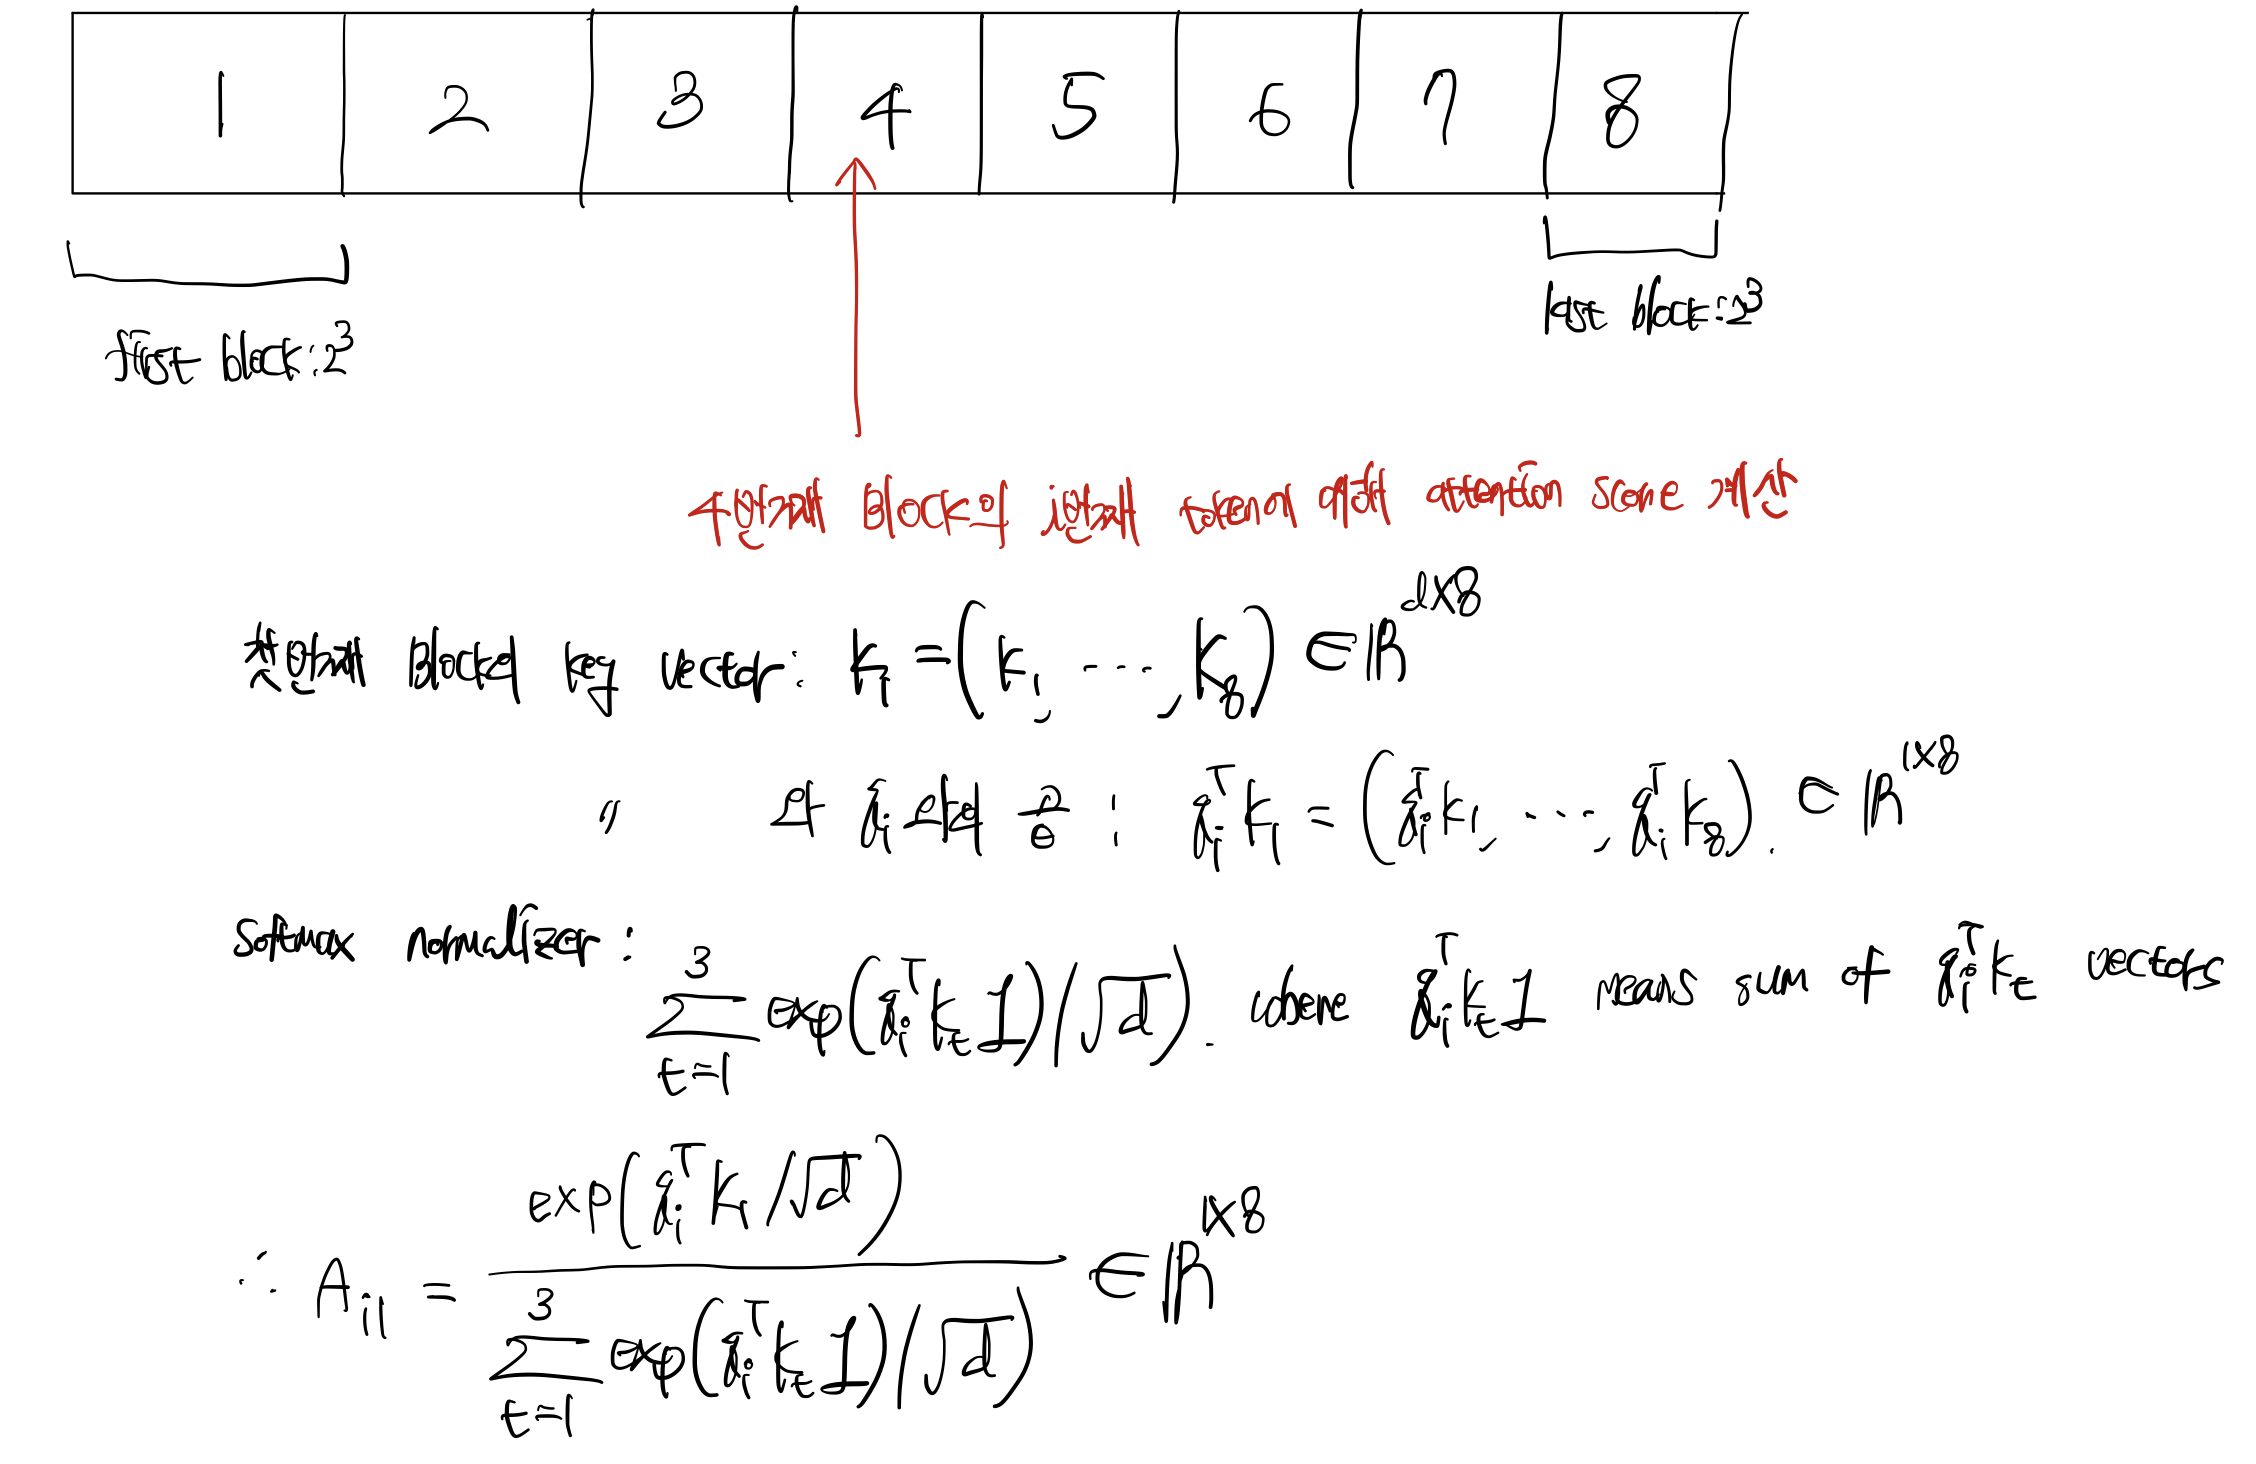 1 2 3 4 5 6 7 8
first block: 2³
last block: 2³
4번째 Block의 i번째 token에 대해 attention score 계산
첫번째 Block의 key vector: K₁ = (k₁, ⋯, k₈) ∈ ℝ^{d×8}
〃 와 qᵢ 와의 곱: qᵢᵀK₁ = (qᵢᵀk₁, ⋯, qᵢᵀk₈). ∈ ℝ^{1×8}
softmax normalizer: ∑_{t=1}^{3} exp(qᵢᵀKₜ1)/√d). where qᵢᵀKₜ1 means sum of qᵢᵀKₜ vectors
∴ A_{i1} = exp(qᵢᵀK₁/√d) / ∑_{t=1}^{3} exp(qᵢᵀKₜ1)/√d) ∈ ℝ^{1×8}